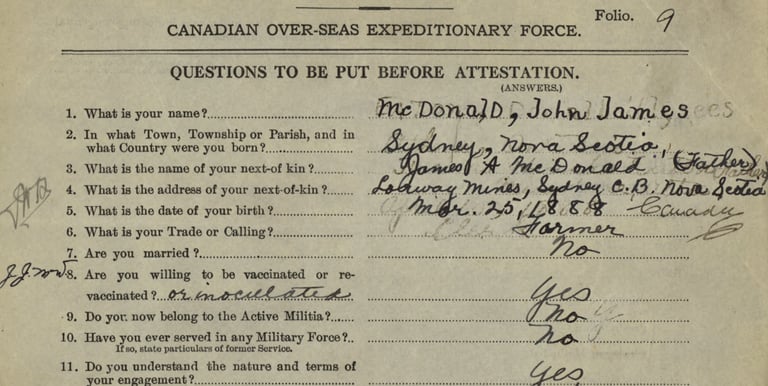 Folio. 9
CANADIAN OVER-SEAS EXPEDITIONARY FORCE.
QUESTIONS TO BE PUT BEFORE ATTESTATION.
(ANSWERS.)
1. What is your name? McDonald, John James
2. In what Town, Township or Parish, and in
what Country were you born? Sydney, Nova Scotia,
3. What is the name of your next-of kin? James A McDonald (Father)
4. What is the address of your next-of-kin? Mines, Sydney C.B. Nova Scotia
5. What is the date of your birth? Mar. 25, 1888 Canada
6. What is your Trade or Calling? Farmer
7. Are you married? No
8. Are you willing to be vaccinated or re-
vaccinated? or inoculated Yes
9. Do you now belong to the Active Militia? No
10. Have you ever served in any Military Force? No
If so, state particulars of former Service.
11. Do you understand the nature and terms of
your engagement? Yes